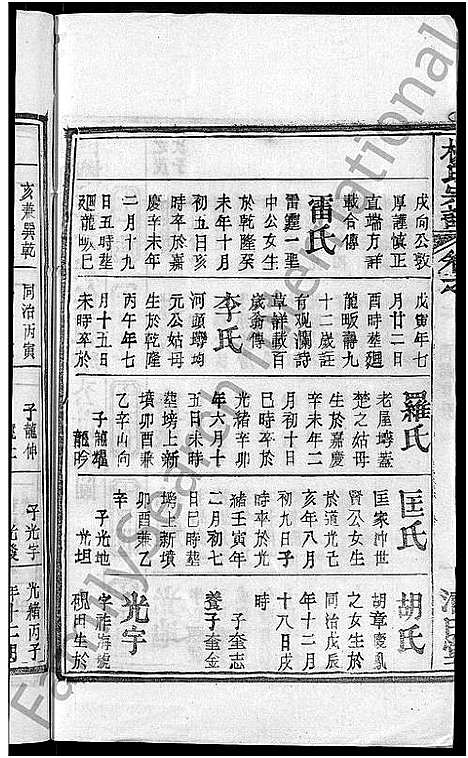 戌向公敦
厚謹慎正
直端方詳
載合傳
雷氏
雷霆一聖
中公女生
於乾隆癸
未年十月
初五日
慶辛未年
二月十九
日五時塟
廻龍畈巳
戊寅年七
月廿二日
酉時塟廻
龍畈壽九
十二歲註
有观瀾詩
草詳載百
歲翁傳
李氏
河頭墈均
元公姑母
生於乾隆
丙午年七
月十五日
未時卒於
羅氏
老屋墈蓋
楚之姑母
生於嘉慶
辛未年二
月初十日
光緒辛卒
年六月十
五日未時
塟塝上新
墳卯酉兼
乙辛山向
子龍躍
龍吟
匡氏
匡家冲世
賢公女生
於道光己
亥年八月
初九日子
時卒於光
緒壬寅年
二月初七
日巳時塟
塝上新墳
卯酉兼乙
辛
子光地
光坦
胡氏
胡章慶鳳
之女生於
同治戊辰
年十二月
十八日戌
時
子奎志
養子奎金
光宇
字祚海號
硯田生於
亥兼巽乾
同治丙寅
子龍伸
子光宇
光緒丙子
FamilySearch International